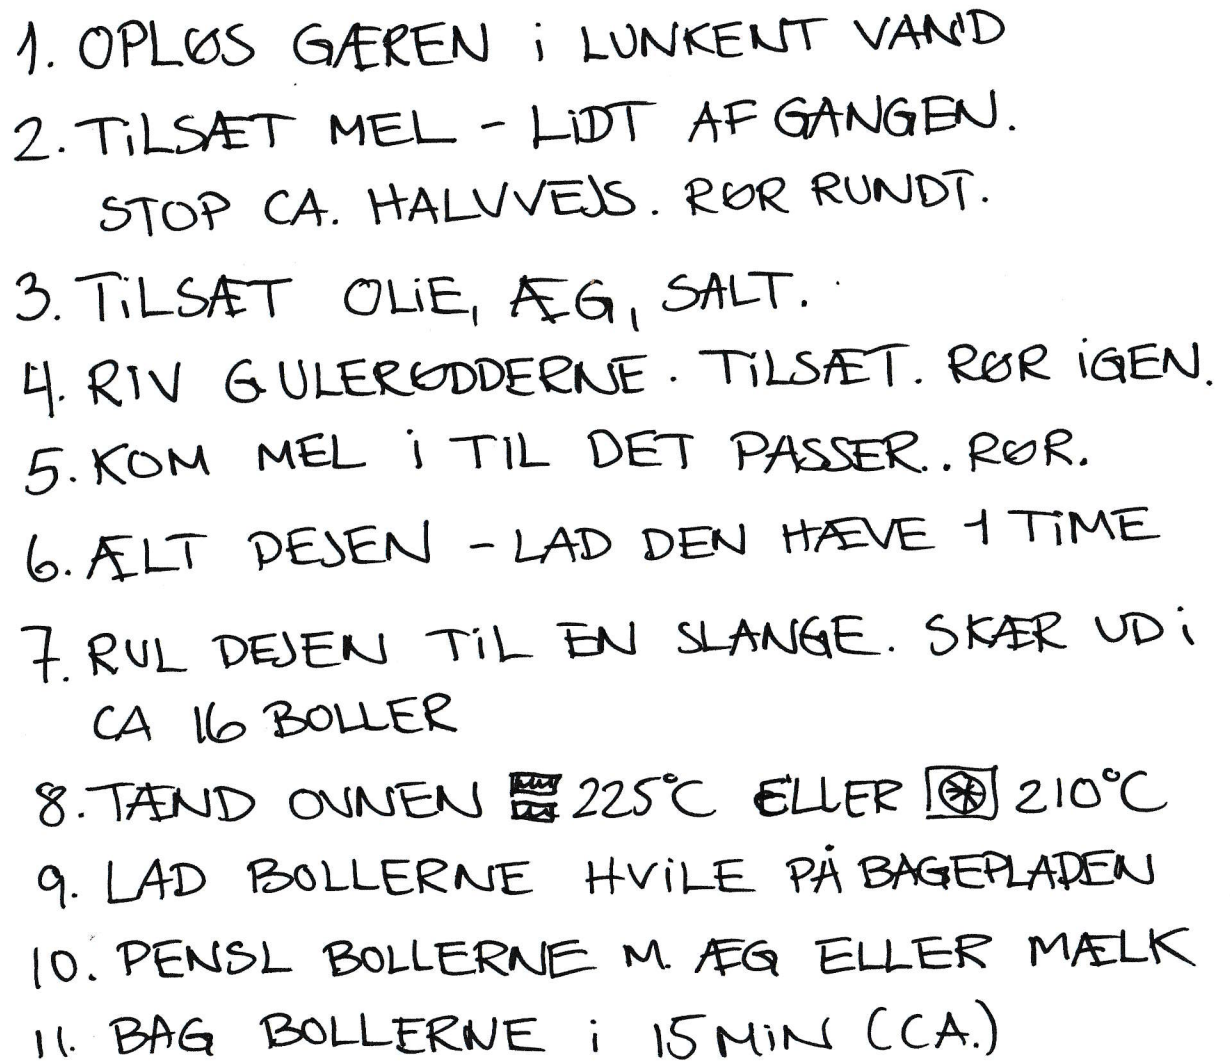 1. OPLØS GÆREN i LUNKENT VAND
2. TiLSÆT MEL - LiDT AF GANGEN.
STOP CA. HALVVEJS. RØR RUNDT.
3. TiLSÆT OLiE, ÆG, SALT.
4. RIV GULERØDDERNE. TiLSÆT. RØR iGEN.
5. KOM MEL i TIL DET PASSER.. RØR.
6. ÆLT DEJEN - LAD DEN HÆVE 1 TiME
7. RUL DEJEN TiL EN SLANGE. SKÆR UD i
CA 16 BOLLER
8. TÆND OVNEN 225°C ELLER 210°C
9. LAD BOLLERNE HViLE PÅ BAGEPLADEN
10. PENSL BOLLERNE M. ÆG ELLER MÆLK
11. BAG BOLLERNE i 15 MiN (CA.)